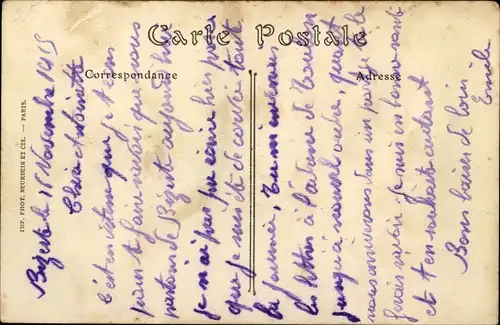 Carte Postale
Correspondance
Adresse
IMP. PHOT. NEURDEIN ET CIE. — PARIS.
Bizerte le 15 Novembre 1915
Chère Antoinette
C'est en attendant que je t'en
pour te faire savoir que nous
partons de Bizerte aujourd'hui
je n'ai pas pu écrire hier parce
que je suis été de corvée toute
la journée, Tu m'enverras
les lettres à l'adresse de Toulon
jusqu'à nouvel ordre, quant
nous serons dans un poste je le
ferai savoir. Je suis en bonne santé
et t'en souhaite autant
Bons baisers de loin
Emile